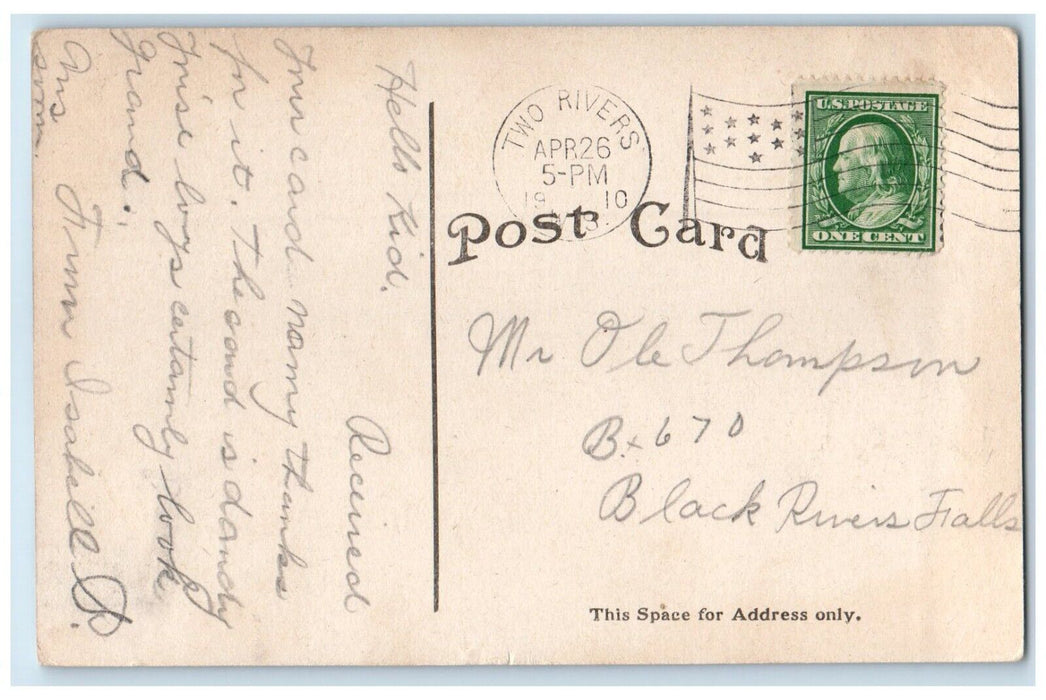 Hello Kid.
Received
Your card many thanks
for it. The card is dandy
boys certainly look
grand.
Ans
soon.
From Isabell P.
TWO RIVERS
APR 26
5-PM
1910
U.S. POSTAGE
ONE CENT
Post Card
Mr Ole Thompson
Bx 670
Black Rivers Falls
This Space for Address only.